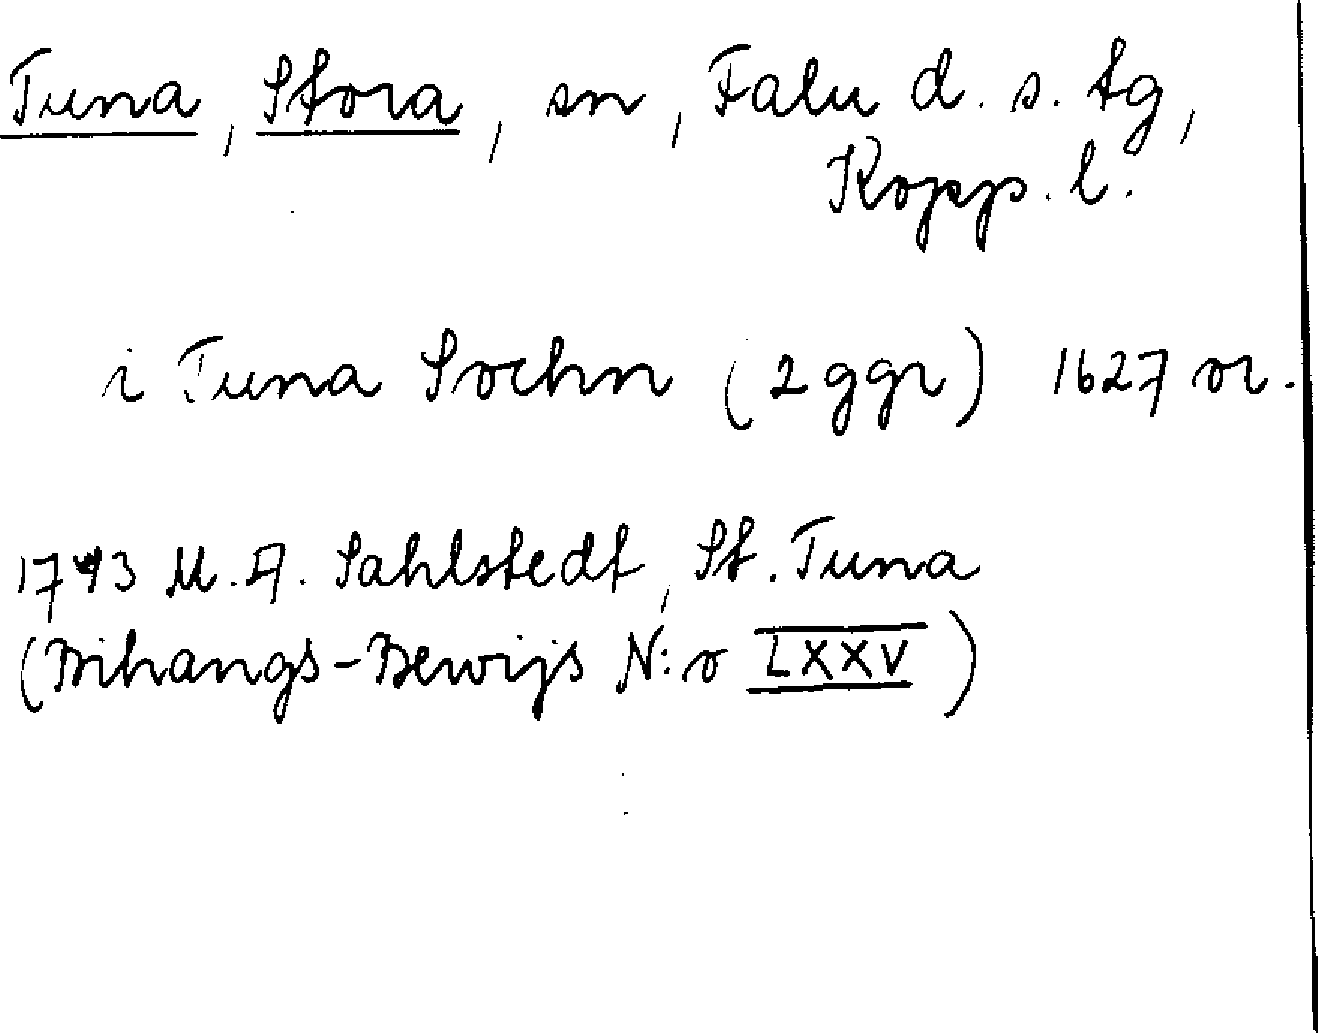 Tuna, Stora, sn, Falu d. s. tg,
Kopp. l.
i Tuna Sochn (2 ggr) 1627 or.
1743 M. A. Sahlstedt, St. Tuna
(Bihangs-Bewijs N:o LXXV)